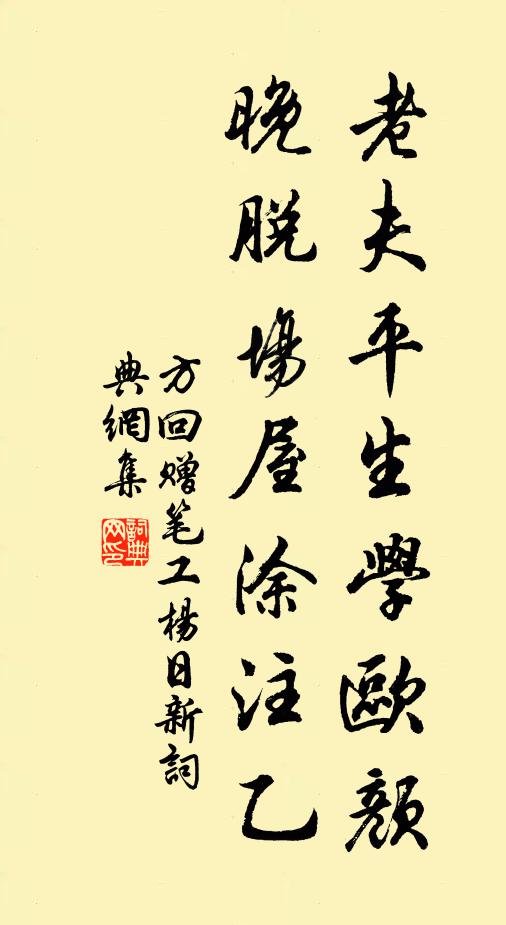 老夫平生學歐顏
晚脱場屋涂注乙
方回赠笔工楊日新詞
典網集
詞典网印